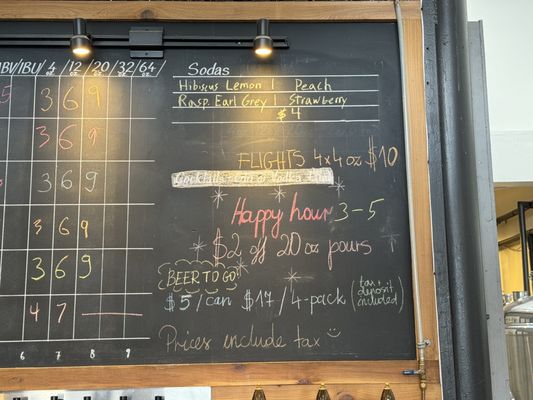 BV/IBU/ 4 oz / 12 oz / 20 oz / 32 / 64 /
5 3 6 9
3 6 9
3 6 9
3 6 9
3 6 9
4 7 —
6 7 8 9
Sodas
Hibiscus Lemon | Peach
Rasp. Earl Grey | Strawberry
$4
FLIGHTS 4x4 oz $10
Happy hour 3-5
$2 off 20oz pours
BEER TO GO
$5/can $17/4-pack (tax + deposit included)
Prices include tax :)